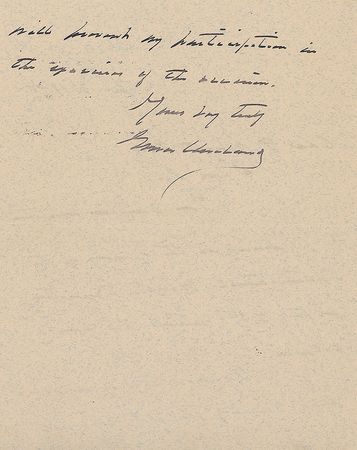 will prevent my participation in
the exercises of the occasion.
Yours very truly
Grover Cleveland